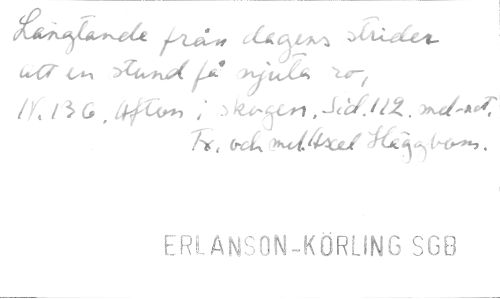 Längtande från dagens strider
att en stund få njuta ro,
N.136. Afton i skogen. Sid.112. mel-not.
Tx. och mel. Axel Häggbom.
ERLANSON-KÖRLING SGB